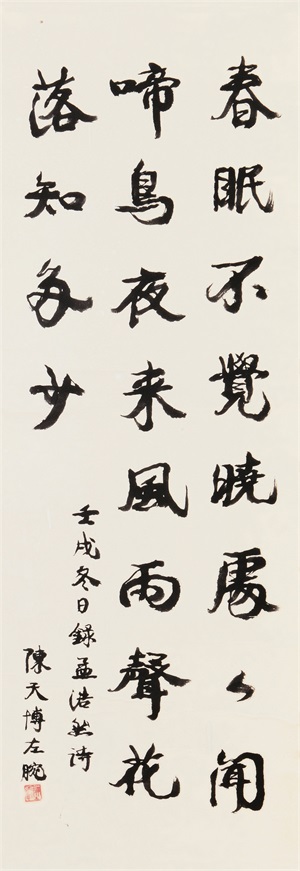 春眠不覺曉處々聞
啼鳥夜来風雨聲花
落知多少
壬戌冬日録孟浩然詩
陳天博左腕